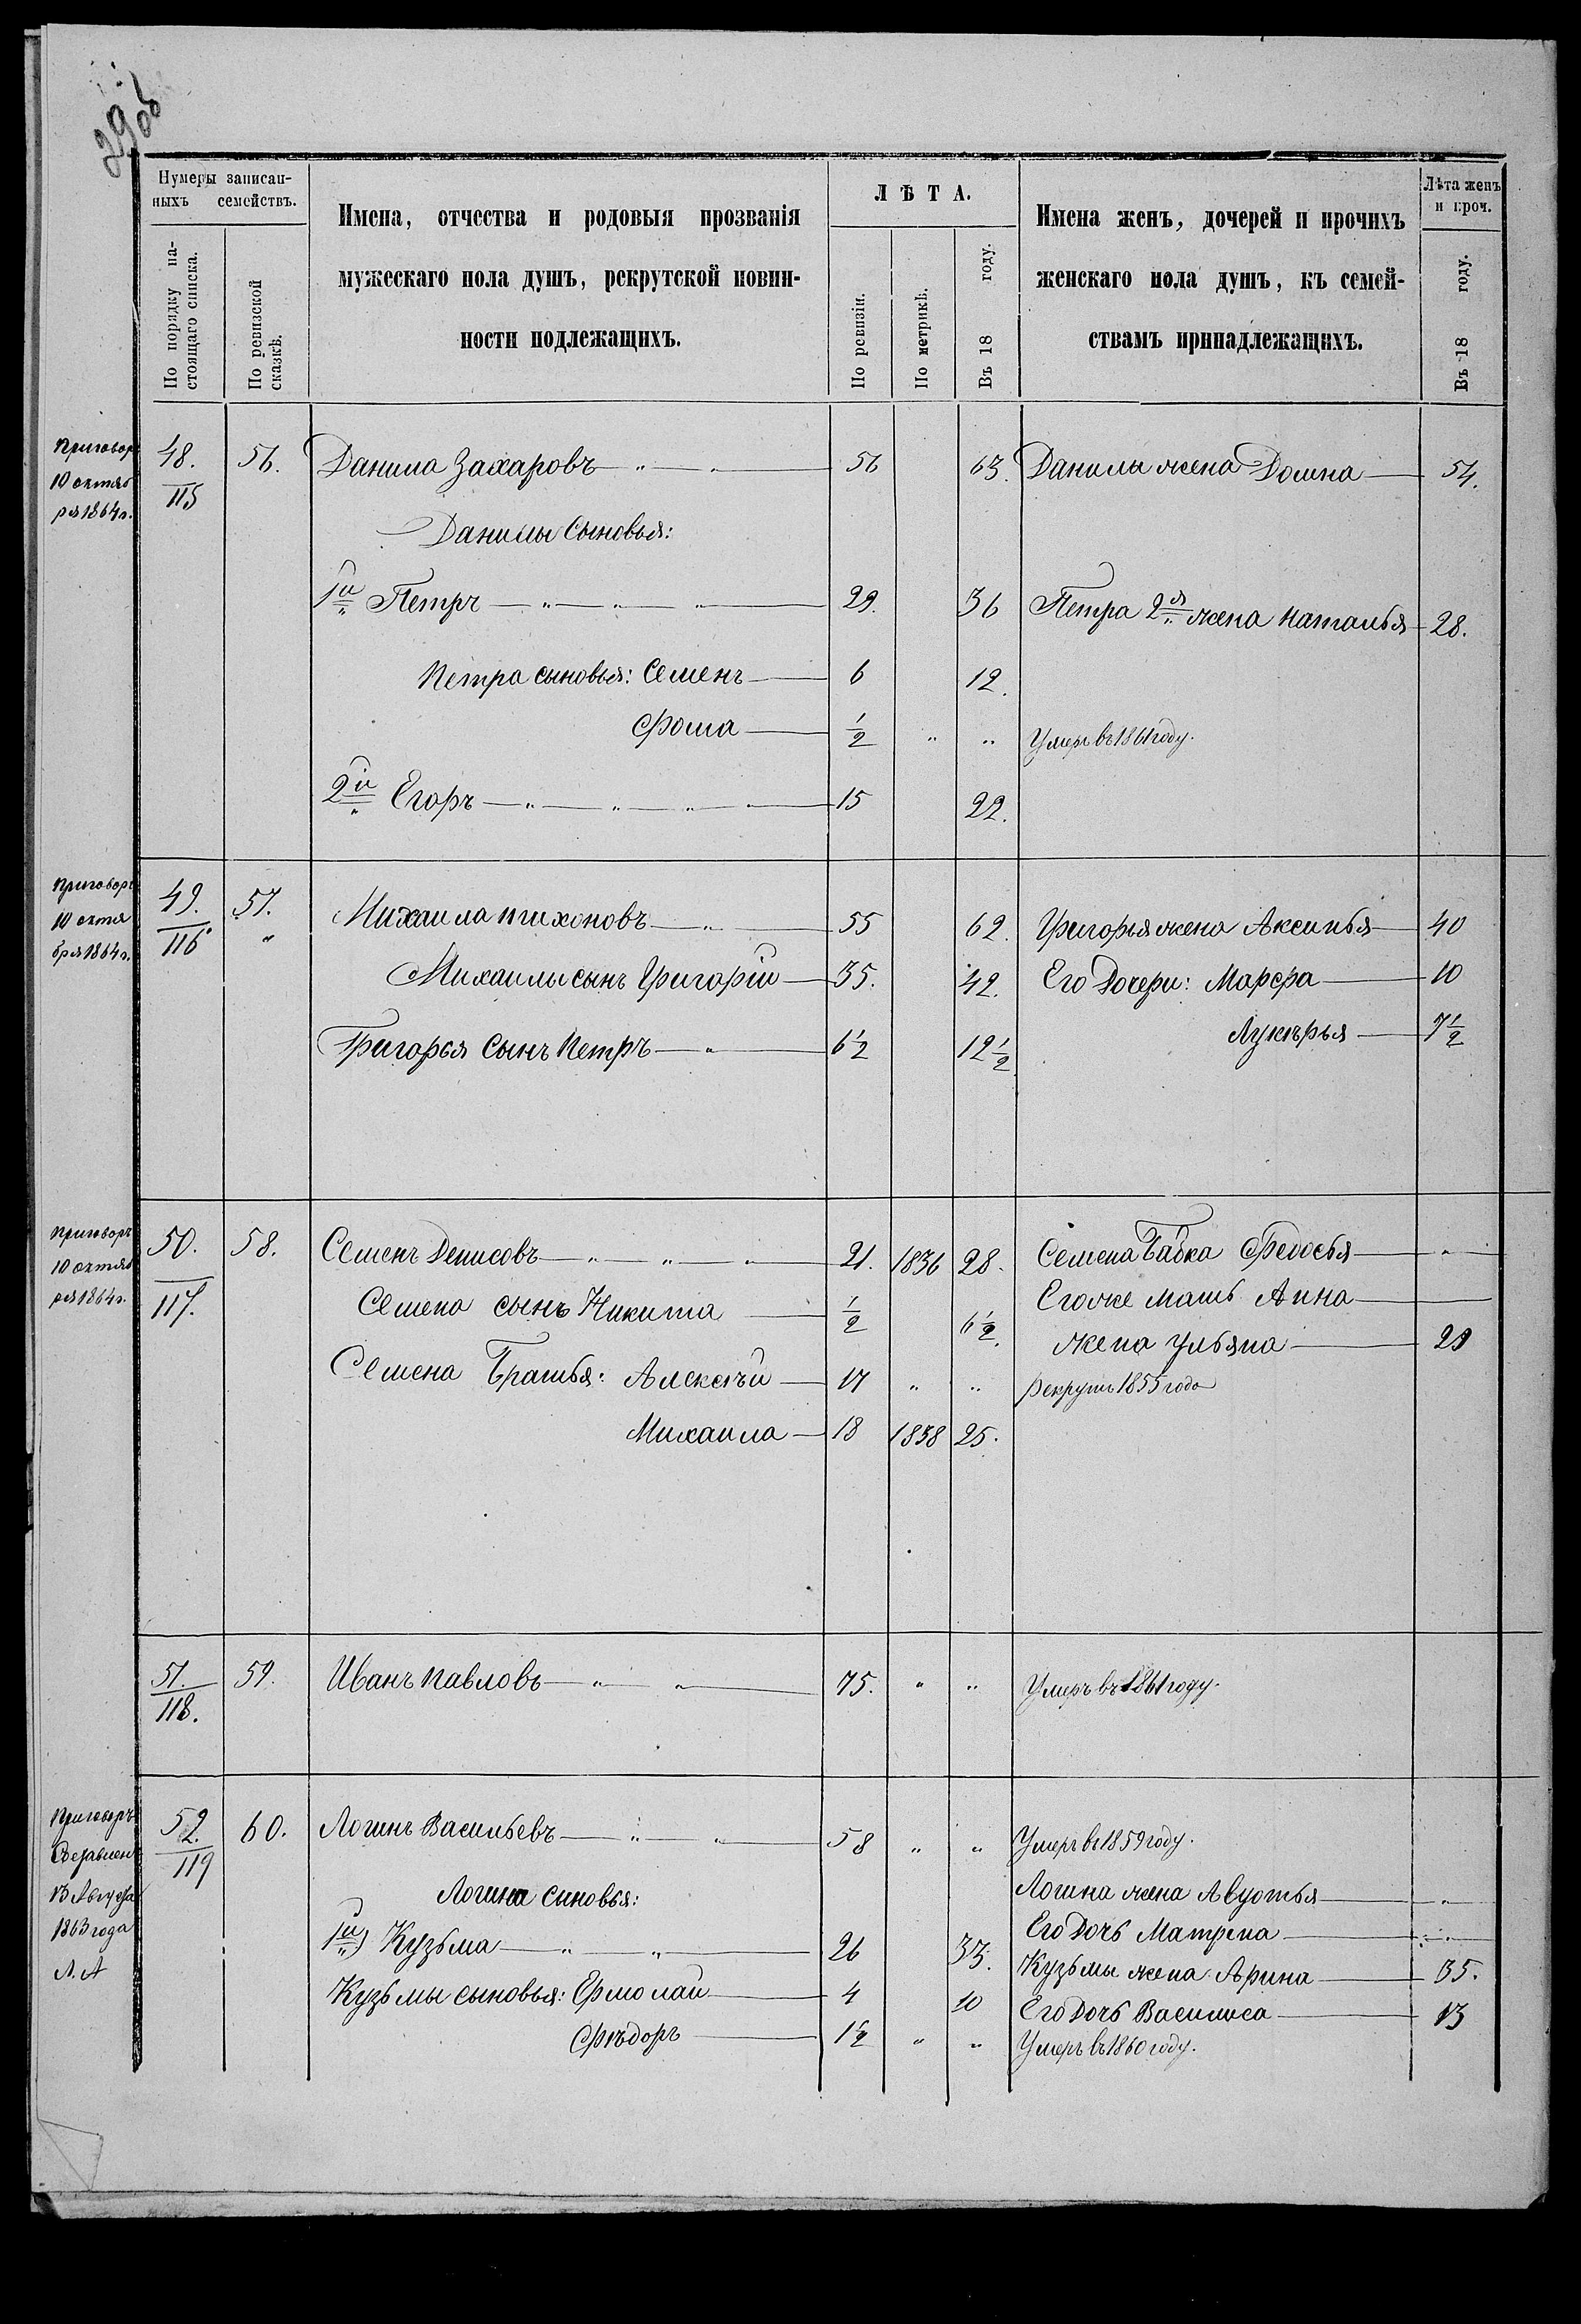 29 об
Нумеры записан-
ныхъ семействъ.
По порядку на-
стоящаго списка.
По ревизской
сказкѣ.
Имена, отчества и родовыя прозванія
мужескаго пола душъ, рекрутской повин-
ности подлежащихъ.
ЛѢТА.
По ревизіи.
По метрикѣ.
Въ 18 году.
Имена женъ, дочерей и прочихъ
женскаго пола душъ, къ семей-
ствамъ принадлежащихъ.
Лѣта женъ
и проч.
Въ 18 году.
Приговор
10 октяб
ря 1864 г.
48. 56. Данила Захаровъ — " — " — 56 63. Данилы жена Домна — 54.
115
Данилы Сыновья:
1й Петръ — " — " — " — 29. 36 Петра 2я жена Наталья — 28.
Петра сыновья: Семенъ — 6 12.
Фома — 1/2 " " Умеръ въ 1861 году.
2й Егоръ — " — " — " — " — 15 22.
Приговоръ
10 октя
бря 1864 г.
49. 57. Михаила Тихоновъ — " — 55 62. Григорья жена Аксинья — 40
116 "
Михаилы сынъ Григорій — 35. 42. Его Дочери: Марфа — 10
Лукѣрья — 7 1/2
Григорья Сынъ Петръ — " — 6 1/2 12 1/2
Приговоръ
10 октяб
ря 1864 г.
50. 58. Семенъ Денисовъ — " — " — " — 21. 1836 28. Семена Бабка Федосья — " —
117.
Семена сынъ Никита — 1/2 6 1/2. Егоже мать Анна —
жена Ульяна — 29
Семена Братья: Алексѣй — 17 " " рекрутъ 1855 года
Михаила — 18 1838 25.
51. 59. Иванъ Павловъ — " — " — 75. " " Умеръ въ 1861 году.
118.
Приговоръ
13 Августа
1863 года
Л. А
52. 60. Логинъ Васильевъ — " — " — 58 " " Умеръ въ 1859 году.
119
Логина синовья: Логина жена Авдотья — " —
Его Дочь Матрена — " —
1й) Кузьма — " — " — 26 33. Кузьмы жена Арина — 35.
Кузьмы сыновья: Ермолай — 4 10 Его Дочь Василиса — 13
Фѣдоръ — 1 1/2 " " Умеръ въ 1860 году.